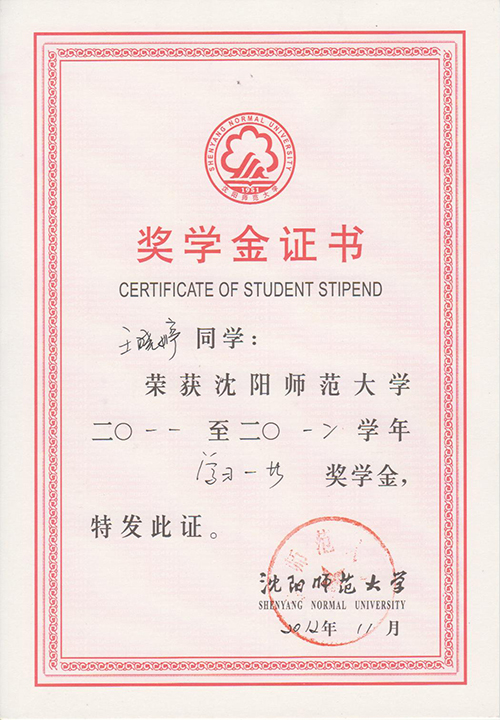 SHENYANG NORMAL UNIVERSITY
1951
沈阳师范大学
奖学金证书
CERTIFICATE OF STUDENT STIPEND
王晓婷 同学：
荣获沈阳师范大学
二〇一一至二〇一二学年
学习一等 奖学金，
特发此证。
沈阳师范大学
SHENYANG NORMAL UNIVERSITY
2012年11月